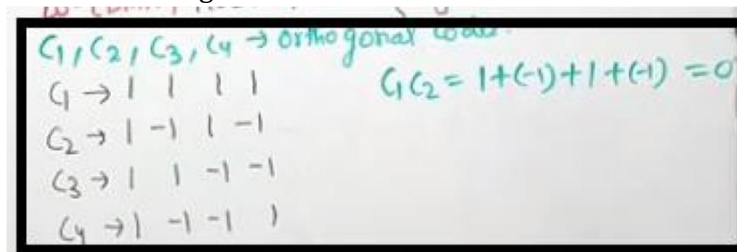 C1, C2, C3, C4 → orthogonal codes.
C1 → 1 1 1 1
C1C2 = 1+(-1)+1+(-1) = 0
C2 → 1 -1 1 -1
C3 → 1 1 -1 -1
C4 → 1 -1 -1 1